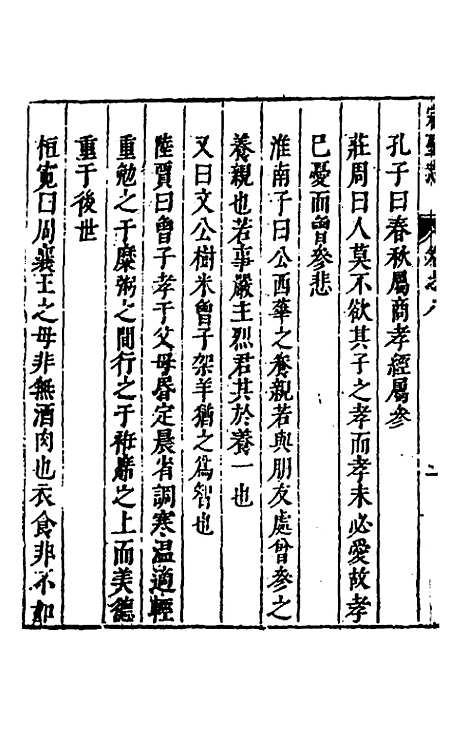 孔子曰春秋屬商孝經屬參
莊周曰人莫不欲其子之孝而孝未必愛故孝
巳憂而曾參悲
淮南子曰公西華之養親若與朋友處曾參之
養親也若事嚴主烈君其於養一也
又曰文公樹米曾子架羊猶之爲智也
陸賈曰曾子孝于父母昏定晨省調寒温適輕
重勉之于糜粥之間行之于袵席之上而美德
重于後世
恒寬曰周襄王之母非無酒肉也衣食非不如